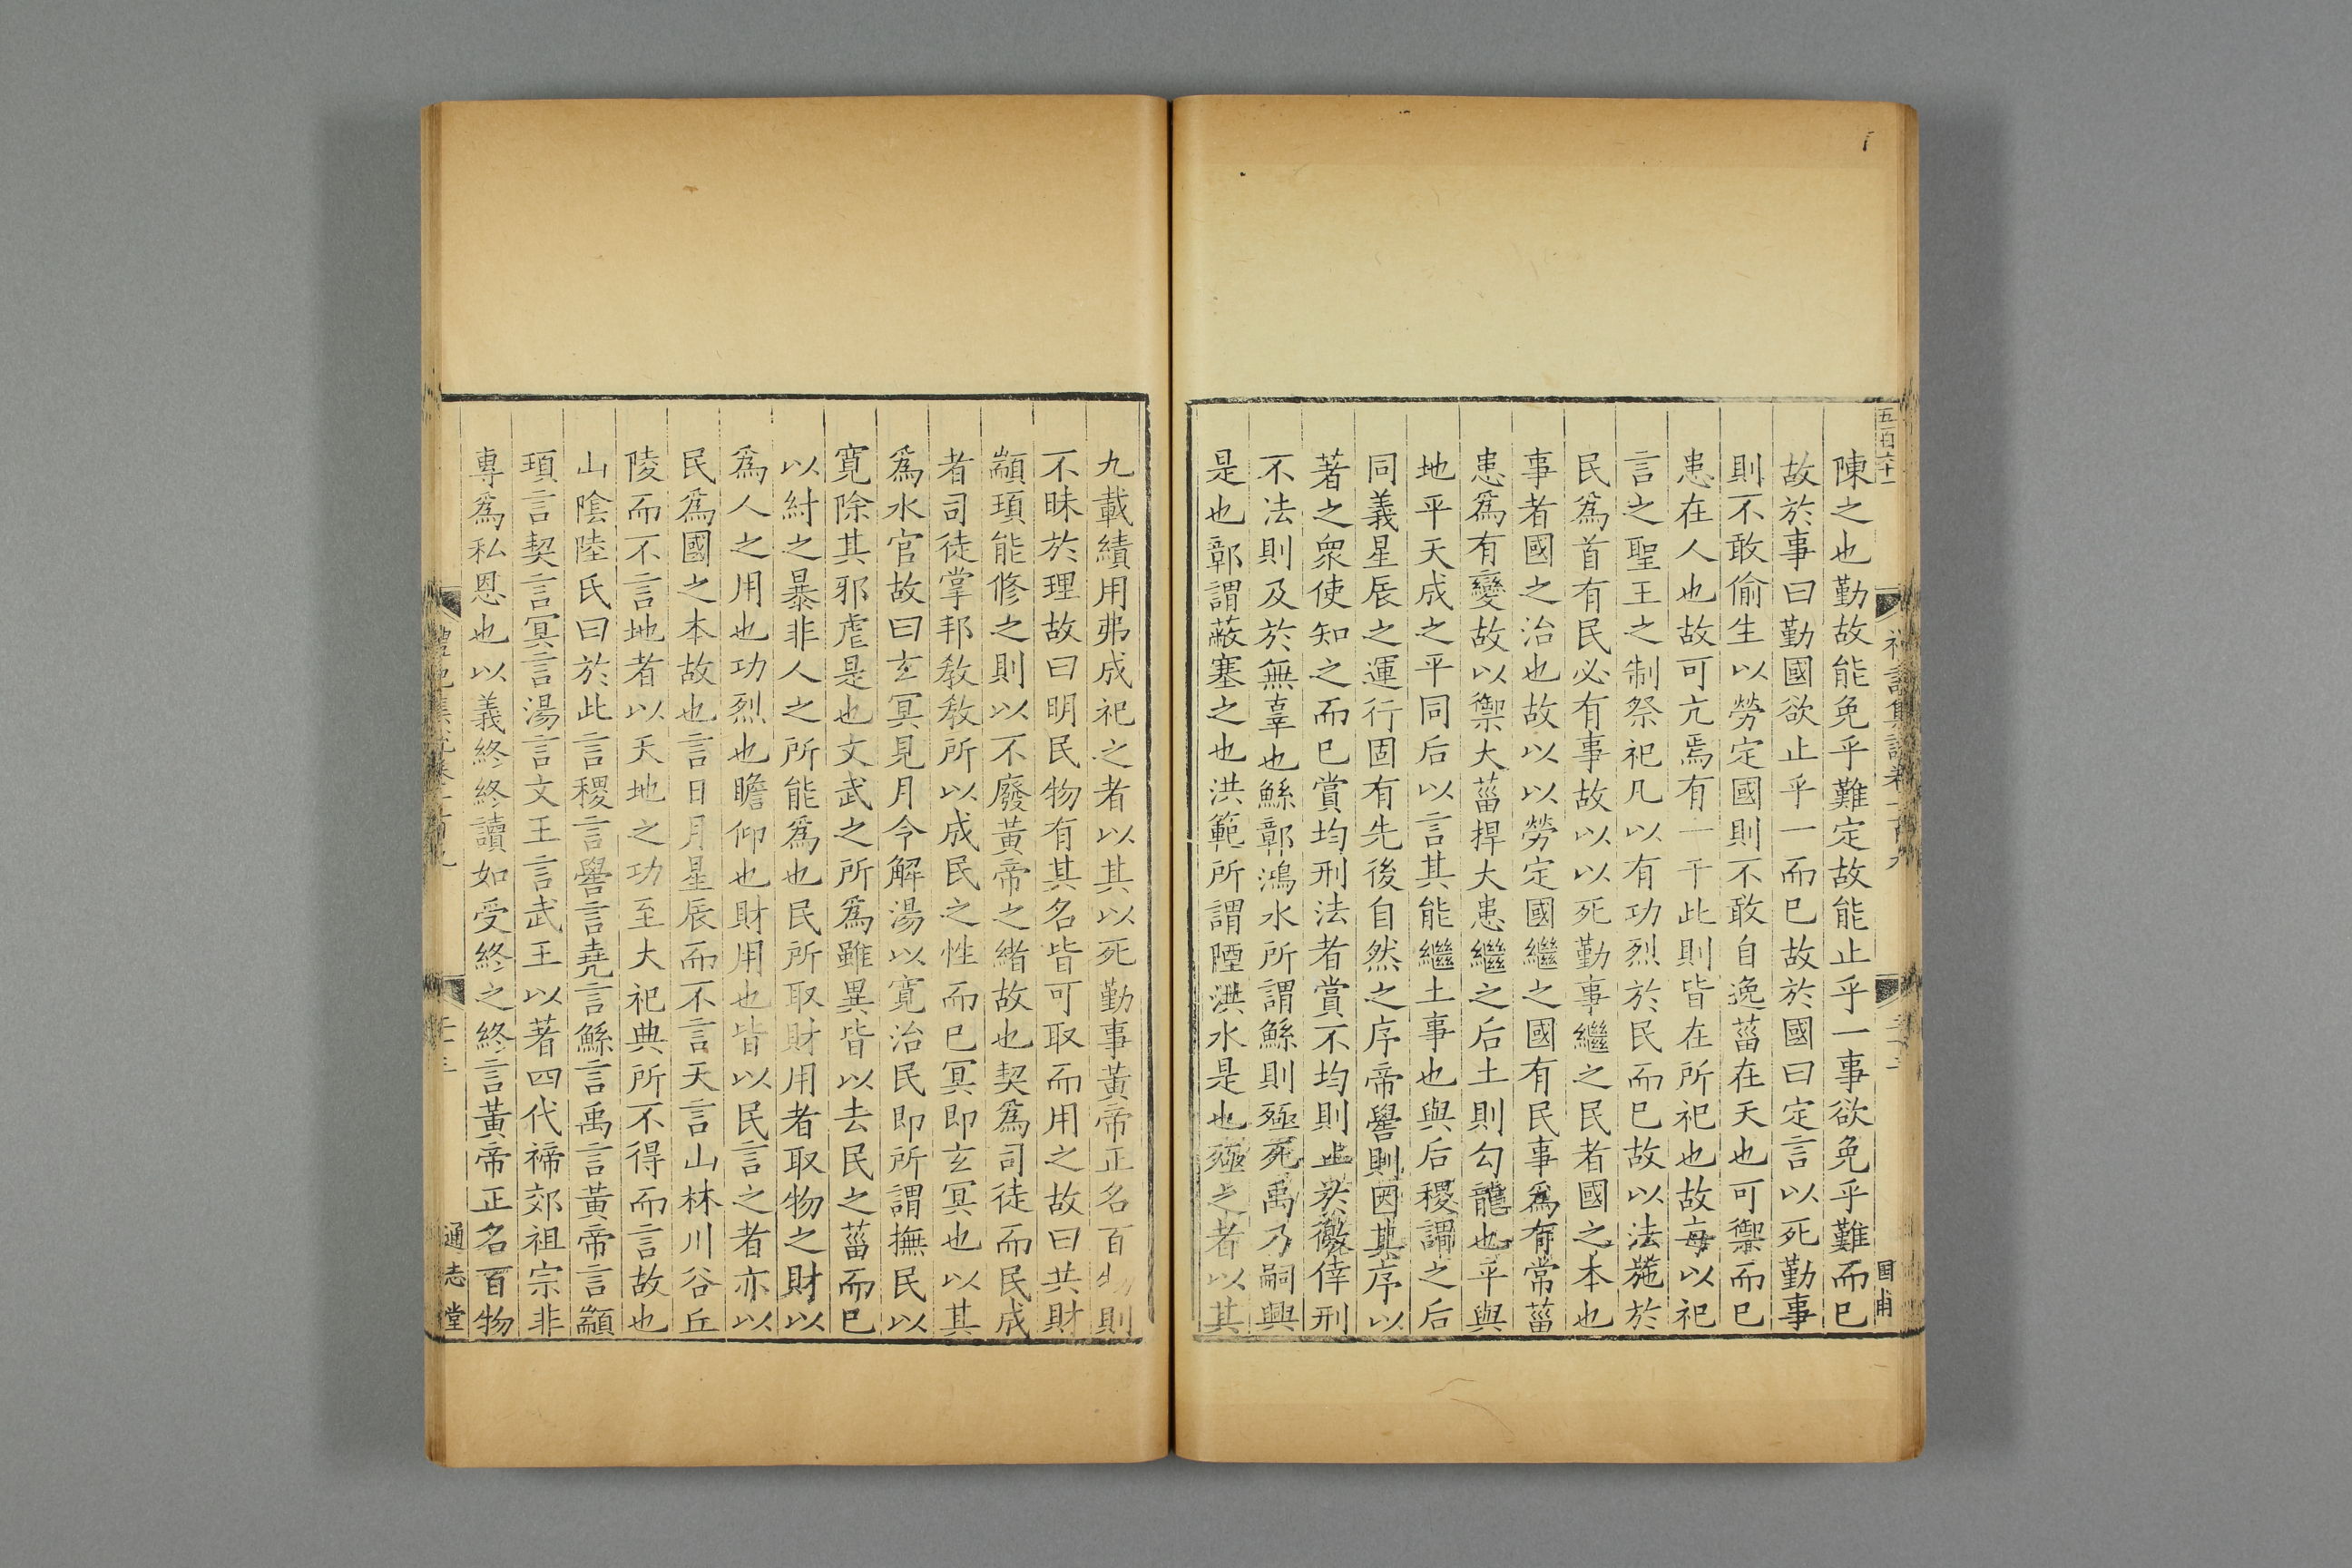 五百六十一
陳之也勤故能免乎難定故能止乎一事欲免乎難而已
故於事曰勤國欲止乎一而已故於國曰定言以死勤事
則不敢偷生以勞定國則不敢自逸菑在天也可禦而已
患在人也故可亢焉有一于此則皆在所祀也故每以祀
言之聖王之制祭祀凡以有功烈於民而已故以法施於
民爲首有民必有事故以以死勤事繼之民者國之本也
事者國之治也故以以勞定國繼之國有民事爲有常菑
患爲有變故以禦大菑捍大患繼之后土則勾龍也平與
地平天成之平同后以言其能繼土事也與后稷謂之后
同義星辰之運行固有先後自然之序帝嚳則因其序以
著之衆使知之而已賞均刑法者賞不均則止於徼倖刑
不法則及於無辜也鯀鄣鴻水所謂鯀則殛死禹乃嗣興
是也鄣謂蔽塞之也洪範所謂陻洪水是也殛之者以其
國甫
九載績用弗成祀之者以其以死勤事黃帝正名百物則
不昧於理故曰明民物有其名皆可取而用之故曰共財
顓頊能修之則以不廢黃帝之緒故也契爲司徒而民成
者司徒掌邦敎敎所以成民之性而已冥即玄冥也以其
爲水官故曰玄冥見月令解湯以寬治民即所謂撫民以
寬除其邪虐是也文武之所爲雖異皆以去民之菑而已
以紂之暴非人之所能爲也民所取財用者取物之財以
爲人之用也功烈也瞻仰也財用也皆以民言之者亦以
民爲國之本故也言日月星辰而不言天言山林川谷丘
陵而不言地者以天地之功至大祀典所不得而言故也
山陰陸氏曰於此言稷言嚳言堯言鯀言禹言黃帝言顓
頊言契言冥言湯言文王言武王以著四代禘郊祖宗非
專爲私恩也以義終終讀如受終之終言黃帝正名百物
通志堂